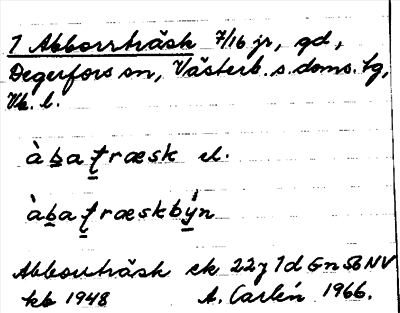 1 Abborrträsk 7/16 jr, gd,
Degerfors sn, Västerb. s. doms. tg,
Vb. l.
àbaʈræsk el.
àbaʈræskbýn
Abborrträsk ek 22 J 1d Gn 56 NV
kb 1948 A. Carlén 1966.